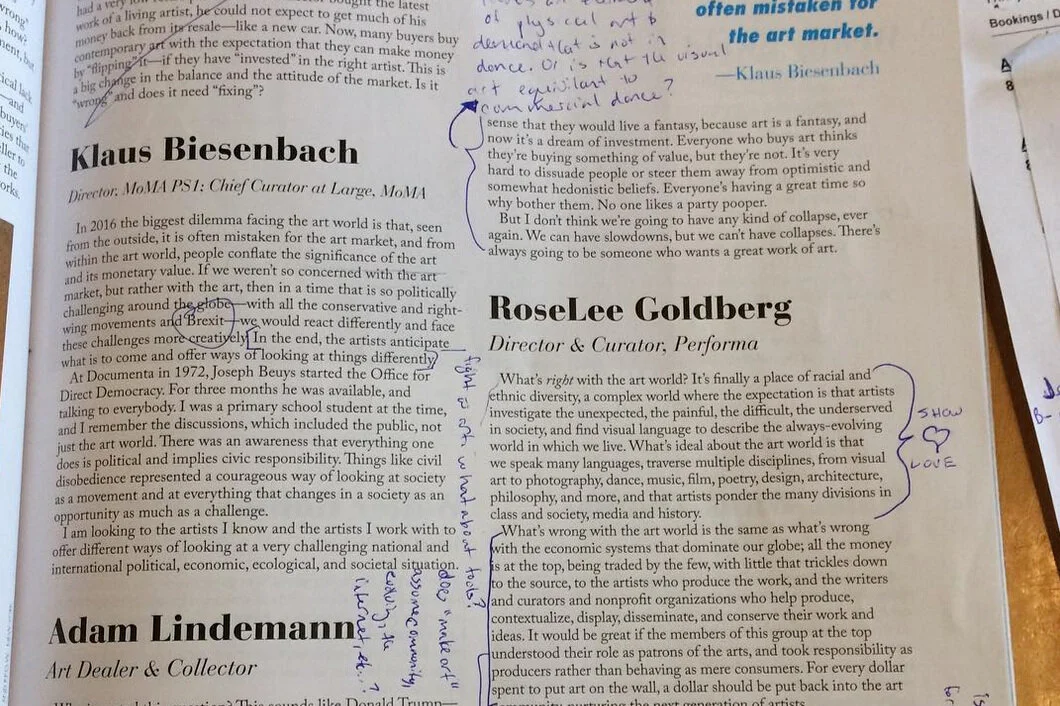 had a very
bought the latest
work of a living artist, he could not expect to get much of his
money back from its resale—like a new car. Now, many buyers buy
contemporary art with the expectation that they can make money
by "flipping" it—if they have "invested" in the right artist. This is
a big change in the balance and the attitude of the market. Is it
"wrong" and does it need "fixing"?
Klaus Biesenbach
Director, MoMA PS1; Chief Curator at Large, MoMA
In 2016 the biggest dilemma facing the art world is that, seen
from the outside, it is often mistaken for the art market, and from
within the art world, people conflate the significance of the art
and its monetary value. If we weren't so concerned with the art
market, but rather with the art, then in a time that is so politically
challenging around the globe—with all the conservative and right-
wing movements and Brexit—we would react differently and face
these challenges more creatively. In the end, the artists anticipate
what is to come and offer ways of looking at things differently.
At Documenta in 1972, Joseph Beuys started the Office for
Direct Democracy. For three months he was available, and
talking to everybody. I was a primary school student at the time,
and I remember the discussions, which included the public, not
just the art world. There was an awareness that everything one
does is political and implies civic responsibility. Things like civil
disobedience represented a courageous way of looking at society
as a movement and at everything that changes in a society as an
opportunity as much as a challenge.
I am looking to the artists I know and the artists I work with to
offer different ways of looking at a very challenging national and
international political, economic, ecological, and societal situation.
Adam Lindemann
Art Dealer & Collector
this sounds like Donald Trump—
fight w art what about tools?
does "make art"
assume community,
internet, etc...?
of physical art &
demand that is not in
dance. Or is that the visual
art equivilant to
commercial dance?
often mistaken for
the art market.
—Klaus Biesenbach
sense that they would live a fantasy, because art is a fantasy, and
now it's a dream of investment. Everyone who buys art thinks
they're buying something of value, but they're not. It's very
hard to dissuade people or steer them away from optimistic and
somewhat hedonistic beliefs. Everyone's having a great time so
why bother them. No one likes a party pooper.
But I don't think we're going to have any kind of collapse, ever
again. We can have slowdowns, but we can't have collapses. There's
always going to be someone who wants a great work of art.
RoseLee Goldberg
Director & Curator, Performa
What's right with the art world? It's finally a place of racial and
ethnic diversity, a complex world where the expectation is that artists
investigate the unexpected, the painful, the difficult, the underserved
in society, and find visual language to describe the always-evolving
world in which we live. What's ideal about the art world is that
we speak many languages, traverse multiple disciplines, from visual
art to photography, dance, music, film, poetry, design, architecture,
philosophy, and more, and that artists ponder the many divisions in
class and society, media and history.
SHOW
LOVE
What's wrong with the art world is the same as what's wrong
with the economic systems that dominate our globe; all the money
is at the top, being traded by the few, with little that trickles down
to the source, to the artists who produce the work, and the writers
and curators and nonprofit organizations who help produce,
contextualize, display, disseminate, and conserve their work and
ideas. It would be great if the members of this group at the top
understood their role as patrons of the arts, and took responsibility as
producers rather than behaving as mere consumers. For every dollar
spent to put art on the wall, a dollar should be put back into the art
community nurturing the next generation of artists
Bookings / D